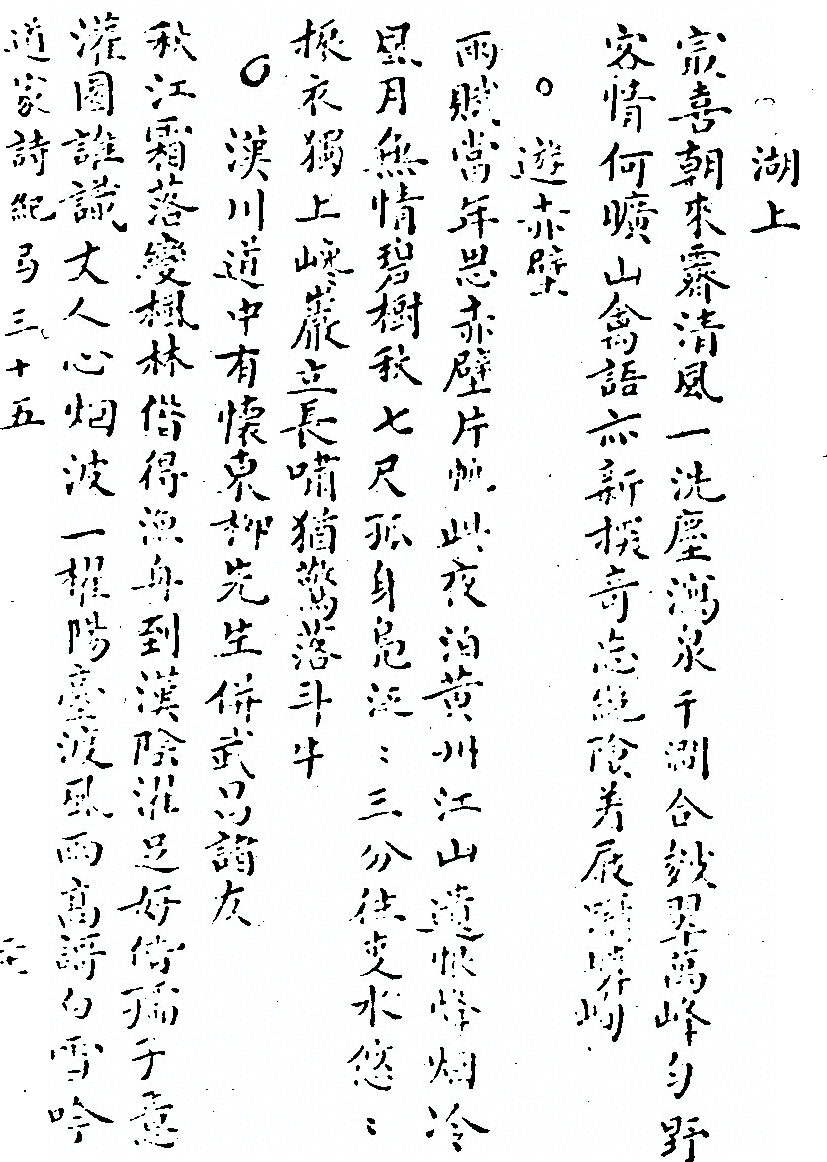 湖上
最喜朝來霽清風一洗塵瀉泉千澗合皴翠萬峰勻野
客情何曠山禽語亦新探奇忘絕險著屐蹋嶙峋
遊赤壁
兩賦當年思赤壁片帆此夜泊黃州江山遺恨烽烟冷
風月無情碧樹秋七尺孤身鳧泛:三分往事水悠:
振衣獨上巉巖立長嘯猶驚落斗牛
漢川道中有懷東柳先生併武昌諸友
秋江霜落變楓林借得漁舟到漢陰濯足好俻孺子意
灌園誰識丈人心烟波一櫂陽臺渡風雨高謌白雪吟
道家詩紀弓三十五